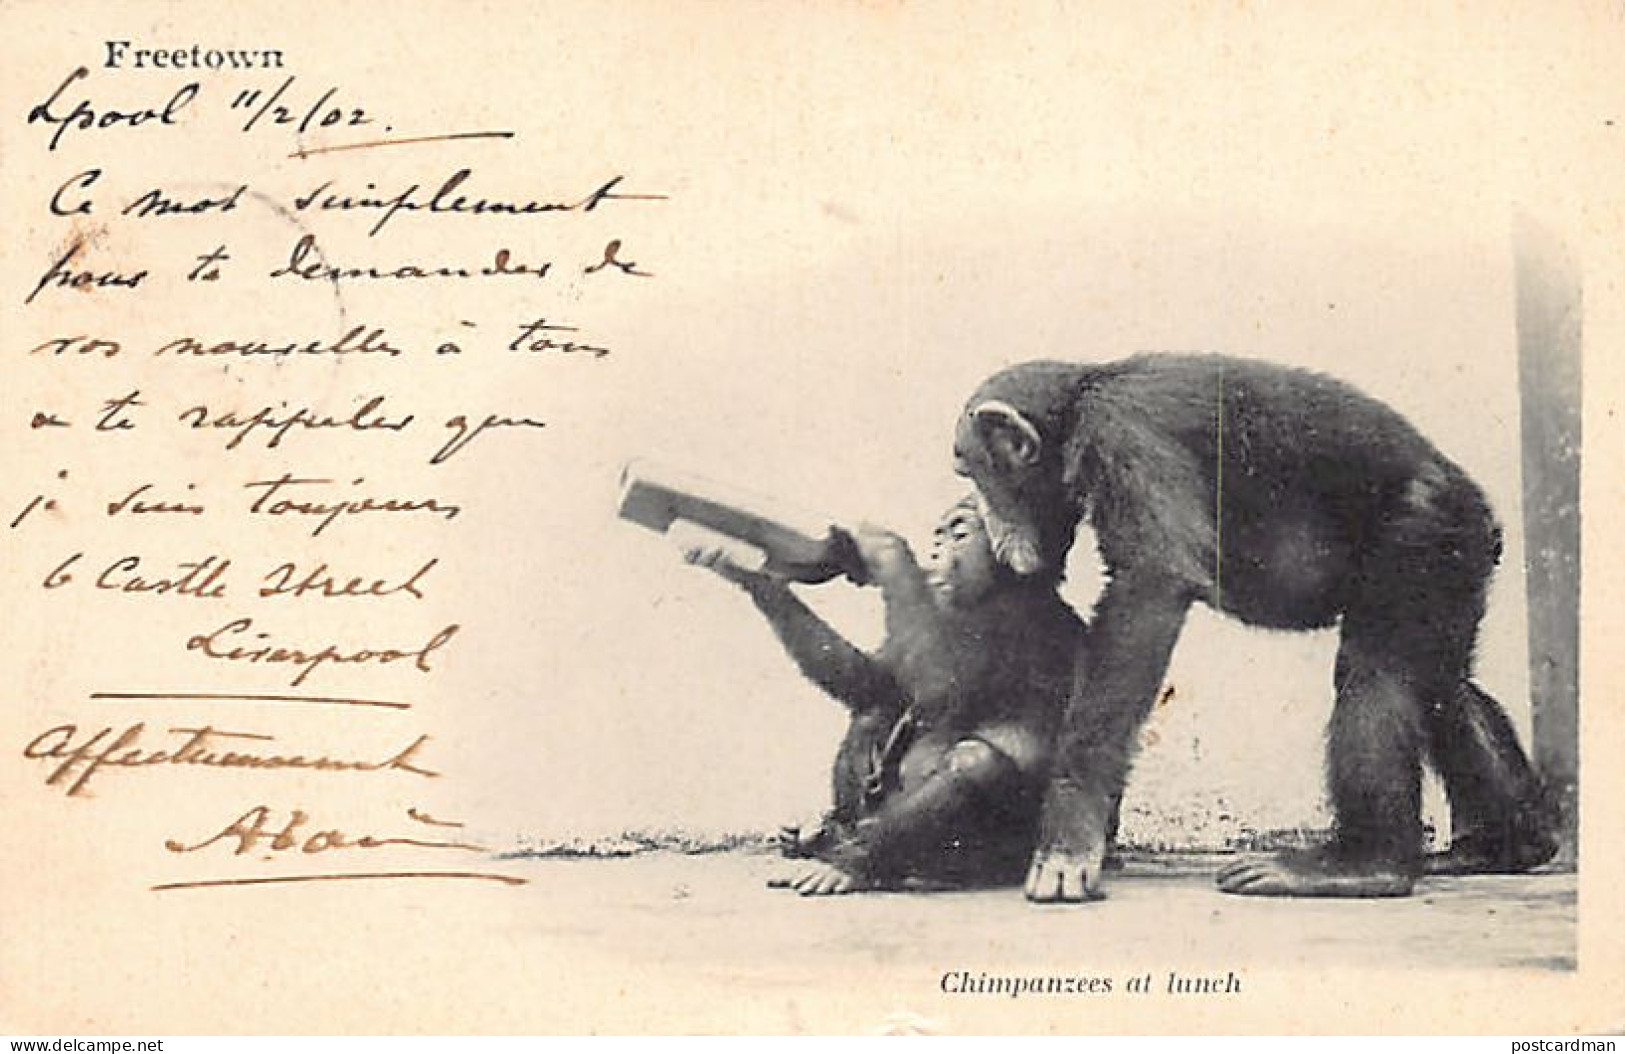 Freetown
Lpool 11/2/02.
Ce mot simplement
pour te demander de
vos nouvelles à tous
& te rappeler que
je suis toujours
6 Castle Street
Liverpool
Affectueusement
Chimpanzees at lunch
www.delcampe.net
postcardman